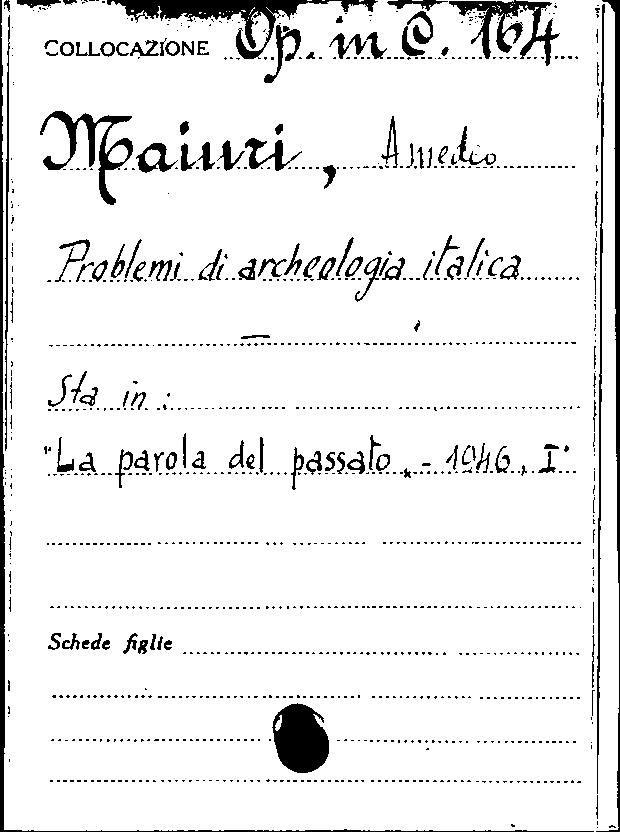 COLLOCAZIONE Op. in C. 164
Maiuri, Amedeo
Problemi di archeologia italica
Sta in :
"La parola del passato„ - 1946, I°
Schede figlie